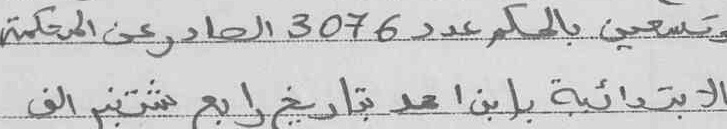 وتسعين بالحكم عدد 3076 الصادر عن المحكمة
الابتدائية بابن احمد بتاريخ رابع شتنبر الف